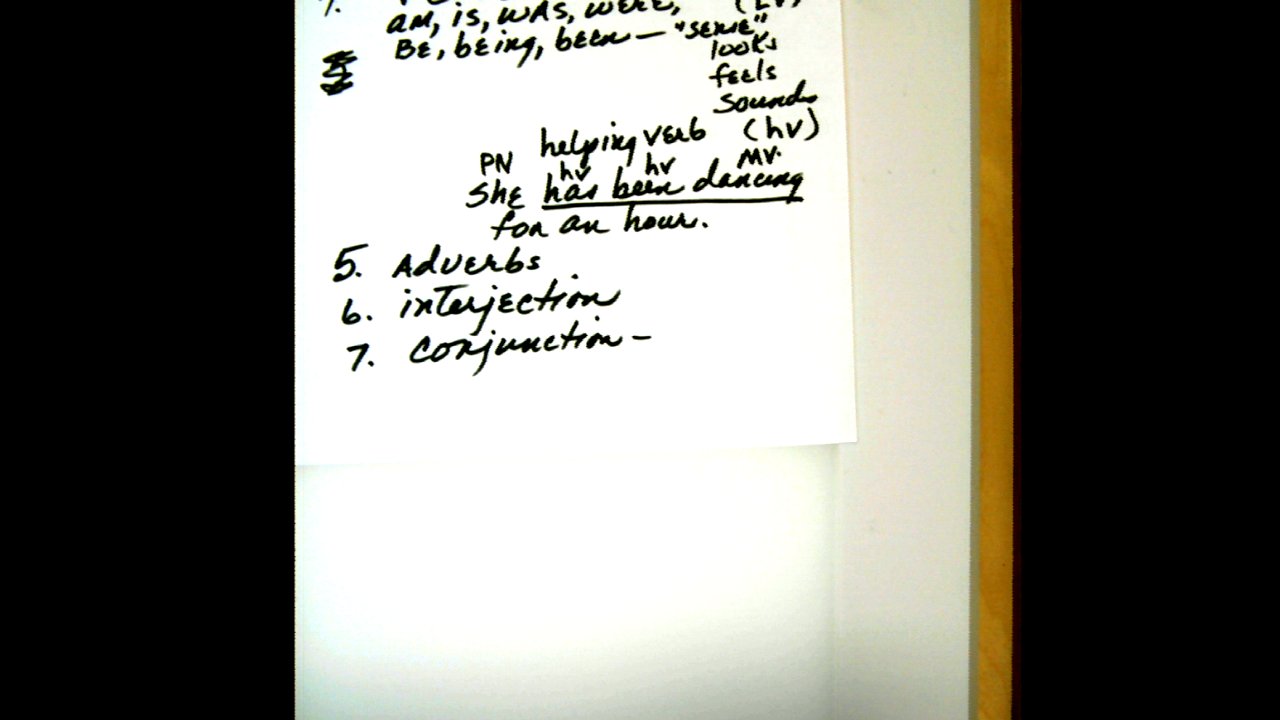 am, is, was, were, (LV)
BE, being, been — "sense"
looks
feels
sounds
helping verb (hv)
PN hv hv MV.
She has been dancing
for an hour.
5. Adverbs
6. interjection
7. Conjunction –